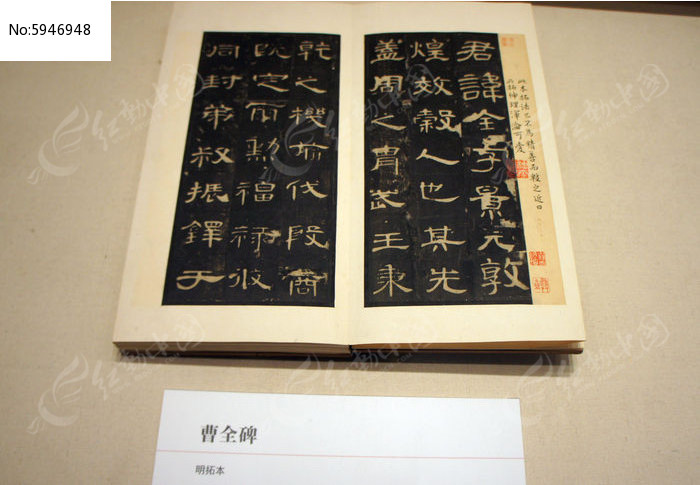 No:5946948
君諱全字景完敦
煌效穀人也其先
蓋周之胄武王秉
乾之機翦伐殷商
既定爾勲福祿攸
同封弟叔振鐸于
此本拓法已不為精善而較之近日
曹全碑
明拓本
红动中国